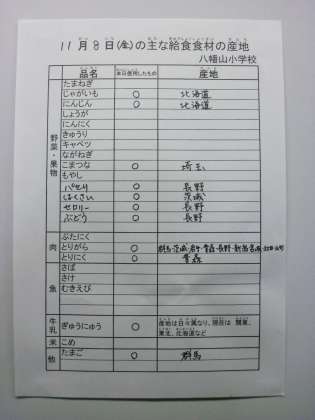 11月8日(金)の主な給食食材の産地
八幡山小学校
品名 本日使用したもの 産地
野菜・果物
たまねぎ
じゃがいも ○ 北海道
にんじん ○ 北海道
しょうが
にんにく
きゅうり
キャベツ
ながねぎ
こまつな ○ 埼玉
もやし
パセリ ○ 長野
はくさい ○ 茨城
セロリー ○ 長野
ぶどう ○ 長野
肉
ぶたにく
とりがら ○ 群馬・茨城・岩手・青森・長野・新潟
とりにく ○ 青森
魚
さば
さけ
むきえび
牛乳 ぎゅうにゅう ○ 産地は日々異なり、現在は 関東、
東北、北海道など
米 こめ
他 たまご ○ 群馬